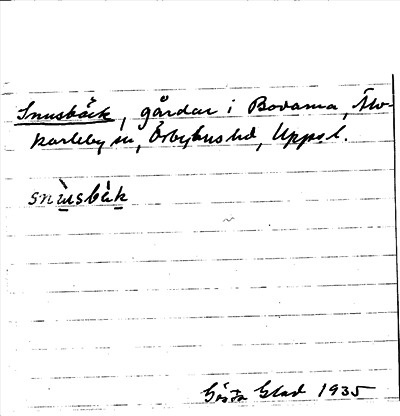 Snusbäck, gårdar i Bodarna, Älv-
karleby sn, Örbyhus hd, Uppsl.
snùsbàk
Gösta Glad 1935